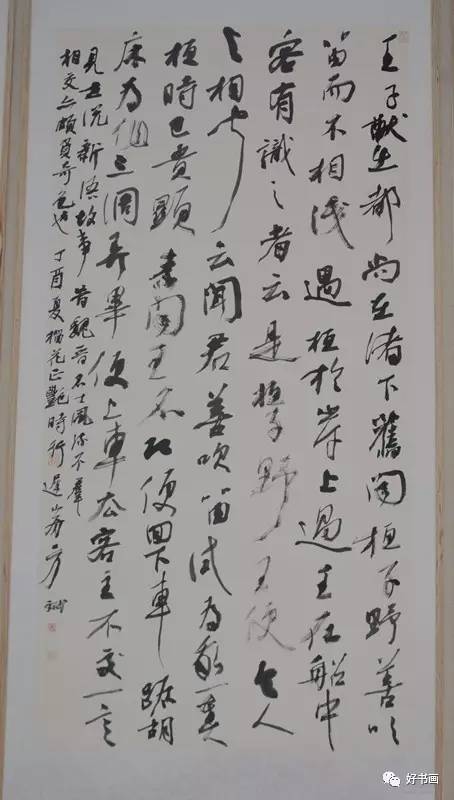 王子猷出都尚在渚下舊聞桓子野善吹
笛而不相識遇桓於岸上過王在船中
客有識之者云是桓子野王便令人
與相聞云聞君善吹笛試為我一奏
桓時已貴顯素聞王名即便回下車踞胡
床為作三調弄畢便上車去客主不交一言
見世說新語故事昔魏晉名士風流不羣
相交亦頗負奇色也丁酉夏榴花正艷時行
好书画